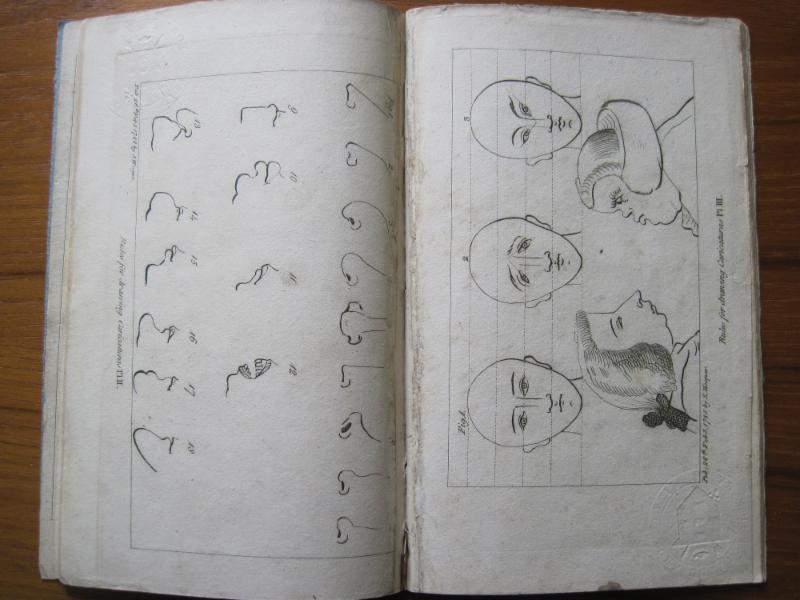 Fig. 1
2
9
10
11
12
13
14
15
16
17
18
Rules for drawing Caricaturas Pl. II.
3
2
Fig. 1.
Rules for drawing Caricaturas Pl. III.